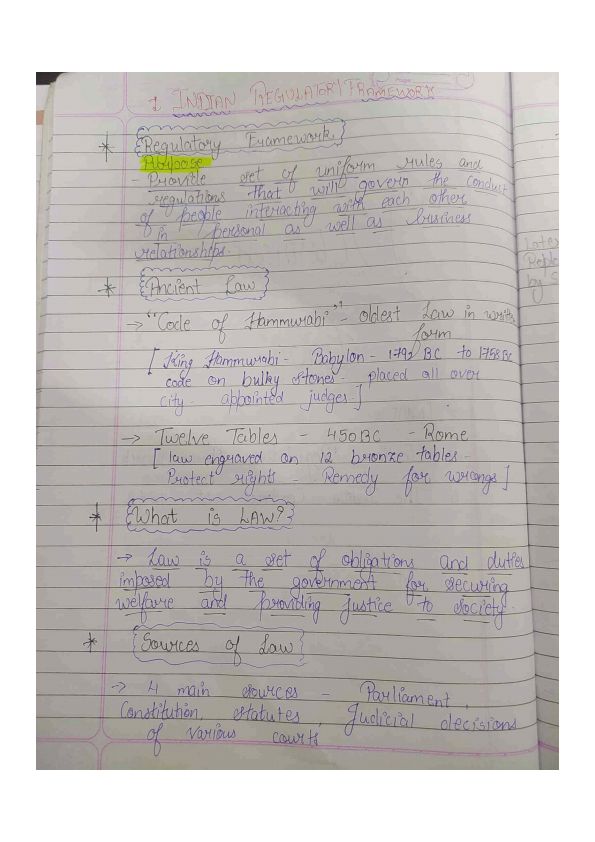 1 INDIAN REGULATORY FRAMEWORK
* Regulatory Framework
Purpose
Provide set of uniform rules and
regulations that will govern the conduct
of people interacting with each other
in personal as well as business
relationships.
* Ancient Law
→ "Code of Hammurabi" - oldest Law in
form
[King Hammurabi - Babylon - 1792 BC to 1758 BC
code on bulky stones - placed all over
city - appointed judges.]
→ Twelve Tables - 450BC - Rome
[law engraved on 12 bronze tables -
Protect rights - Remedy for wrongs]
* What is LAW?
→ Law is a set of obligations and duties
imposed by the government for securing
welfare and providing justice to society.
* Sources of Law
→ 4 main sources - Parliament,
Constitution, statutes, Judicial decisions
of various courts
by